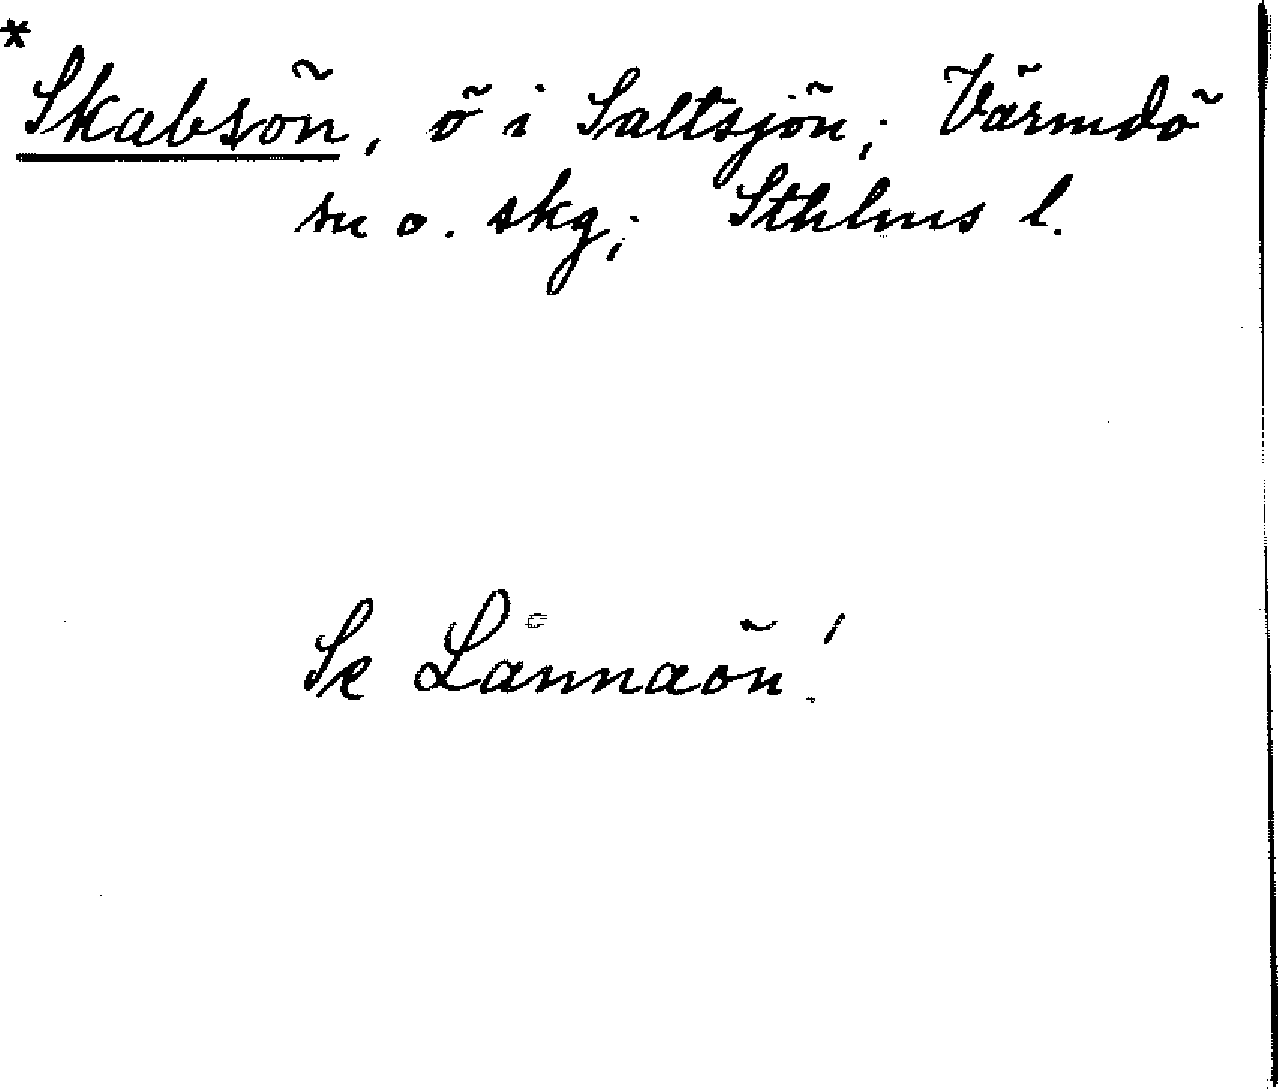 *
Skabsön, ö i Saltsjön; Värmdö
sn o. skg; Sthlms l.
Se Lännaön!